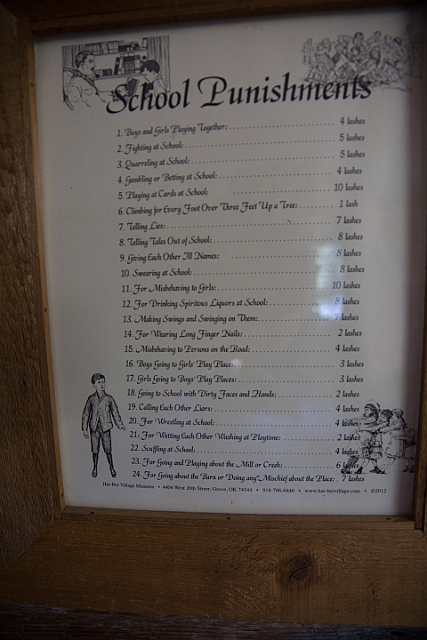 School Punishments
1. Boys and Girls Playing Together: 4 lashes
2. Fighting at School: 5 lashes
3. Quarreling at School: 5 lashes
4. Gambling or Betting at School: 4 lashes
5. Playing at Cards at School: 10 lashes
6. Climbing for Every Foot Over Three Feet Up a Tree: 1 lash
7. Telling Lies: 7 lashes
8. Telling Tales Out of School: 8 lashes
9. Giving Each Other Ill Names: 8 lashes
10. Swearing at School: 8 lashes
11. For Misbehaving to Girls: 10 lashes
12. For Drinking Spiritous Liquors at School: 8 lashes
13. Making Swings and Swinging on Them: 7 lashes
14. For Wearing Long Finger Nails: 2 lashes
15. Misbehaving to Persons on the Road: 4 lashes
16. Boys Going to Girls' Play Places: 3 lashes
17. Girls Going to Boys' Play Places: 3 lashes
18. Going to School with Dirty Faces and Hands: 2 lashes
19. Calling Each Other Liars: 4 lashes
20. For Wrestling at School: 4 lashes
21: For Wetting Each Other Washing at Playtime: 2 lashes
22. Scuffling at School: 4 lashes
23. For Going and Playing about the Mill or Creek: 6 lashes
24. For Going about the Barn or Doing any Mischief about the Place: 7 lashes
Har-Ber Village Museum • 4404 West 20th Street, Grove, OK 74344 • 918-786-6446 • www.har-bervillage.com • ©2012